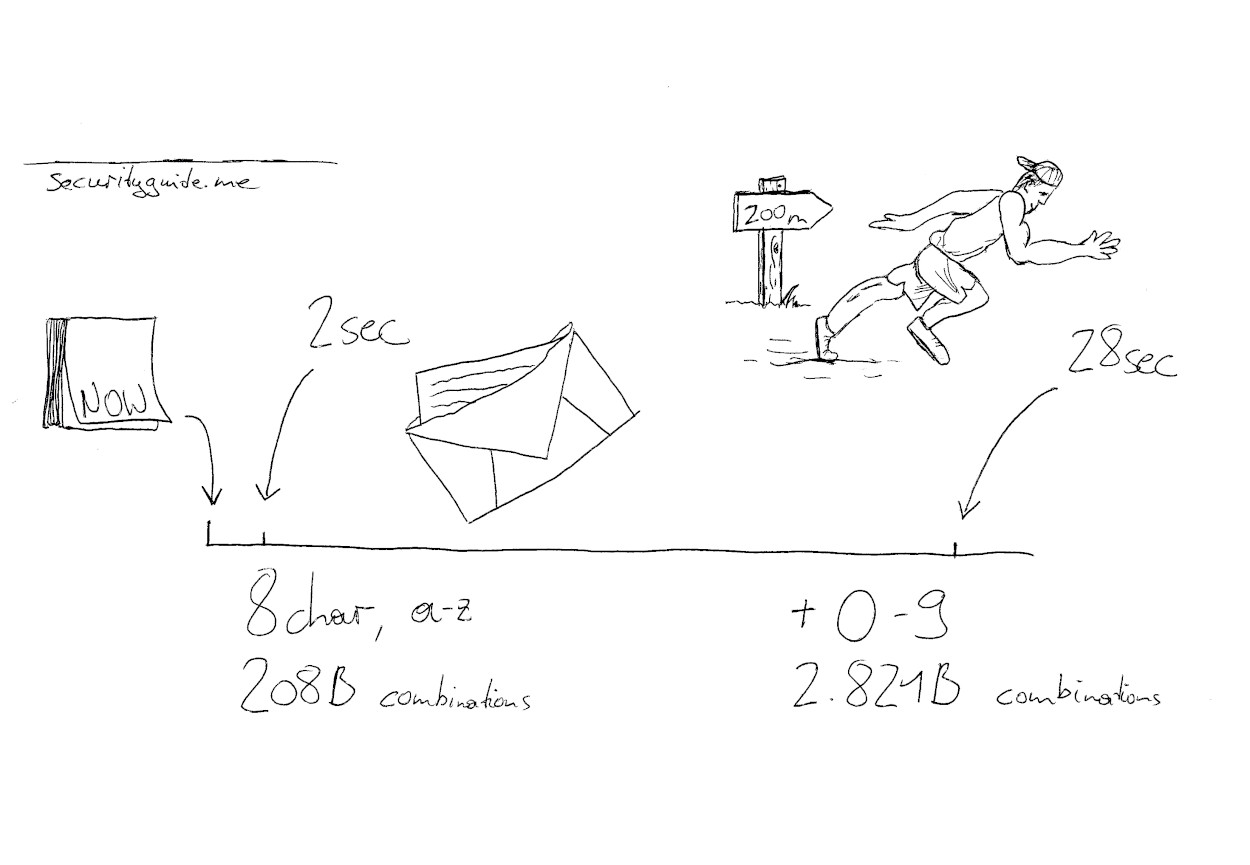 securityguide.me
200m
NOW
2sec
28sec
8char, a-z
208B combinations
+ 0-9
2.821B combinations